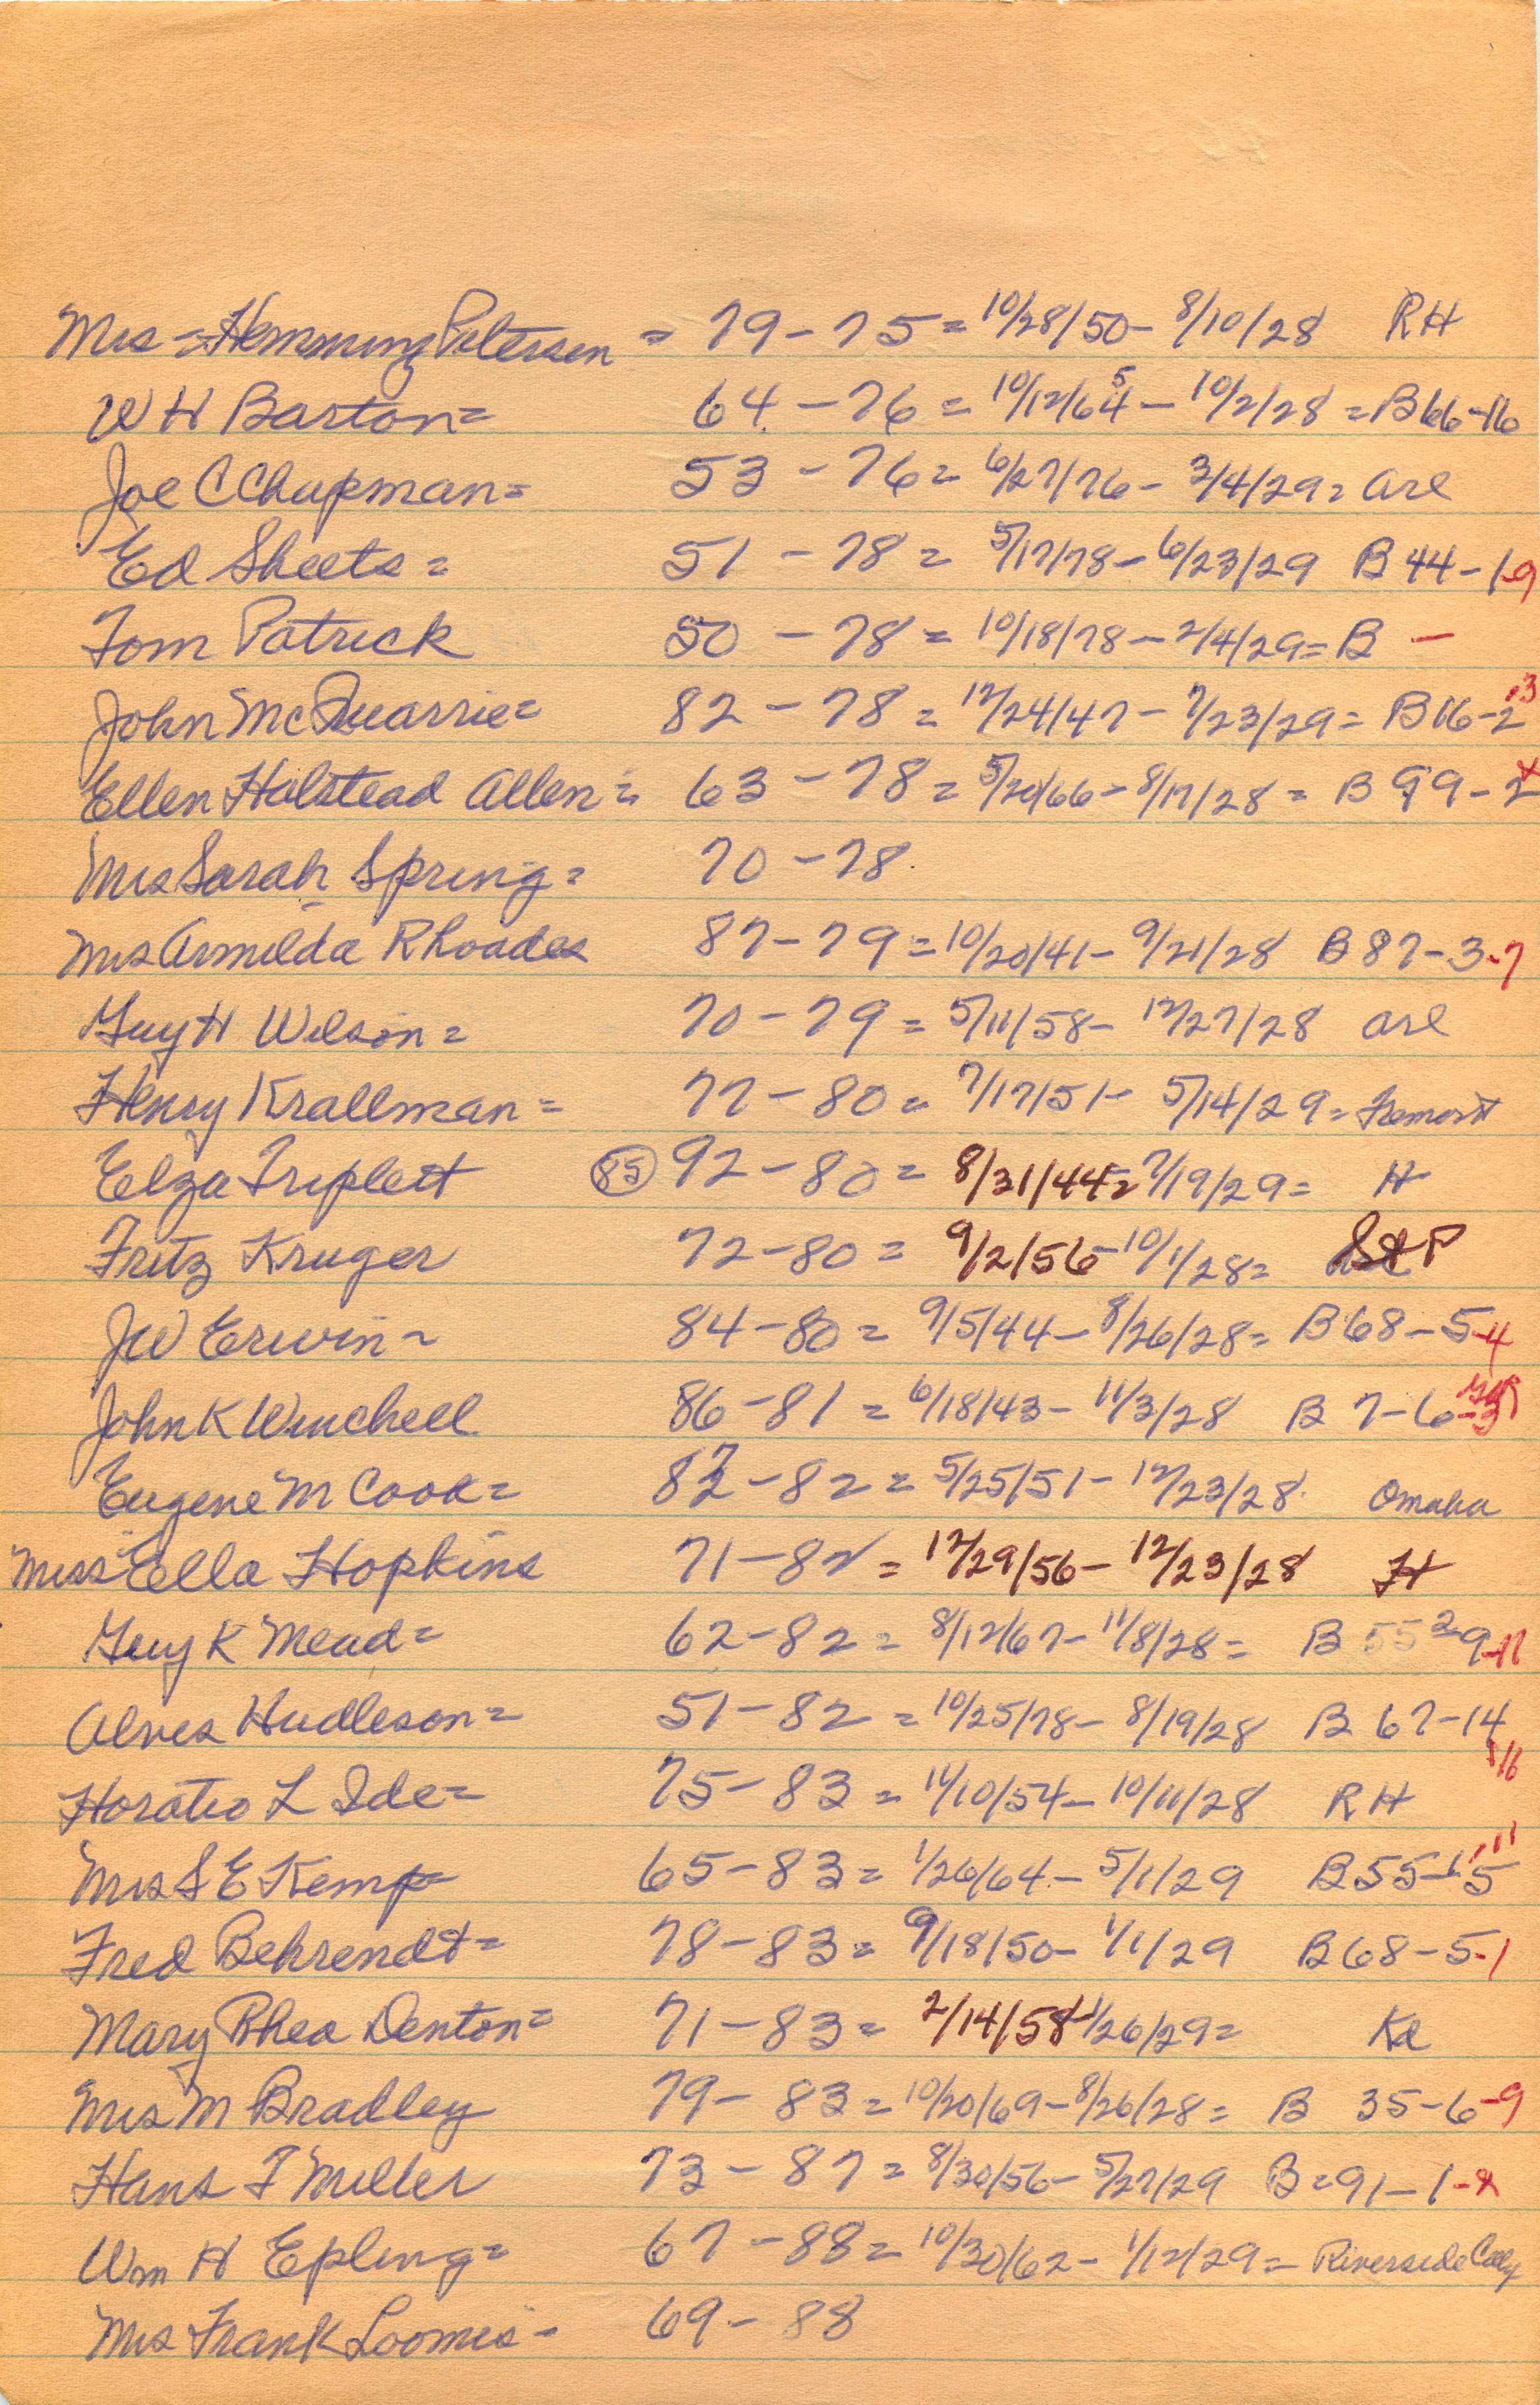 Mrs = Hemming Petersen = 79 - 75 = 10/28/50 - 8/10/28 RH
W H Barton = 64 - 76 = 10/12/64 5 - 10/2/28 = B 66-16
Joe C Chapman = 53 - 76 = 6/27/76 - 3/4/29 = Arl
Ed Sheets = 51 - 78 = 5/17/78 - 6/23/29 B 44-1-9
Tom Patrick 50 - 78 = 10/18/78 - 2/4/29 = B -
John McQuarrie = 82 - 78 = 12/24/47 - 7/23/29 = B 16-2 -3
Ellen Halstead Allen = 63 - 78 = 5/20/66 - 8/17/28 = B 99-2
Mrs Sarah Spring = 70 - 78
Mrs Armilda Rhoades 87 - 79 = 10/20/41 - 9/21/28 B 87-3-7
Guy H Wilson = 70 - 79 = 5/11/58 - 12/27/28 Arl
Henry Krallman = 77 - 80 = 7/17/51 - 5/14/29 = Fremont
Elza Triplett 85 92 - 80 = 8/31/44 = 7/19/29 = H
Fritz Kruger 72 - 80 = 9/2/56 - 10/1/28 = St P
J W Erwin = 84 - 80 = 9/5/44 - 8/26/28 = B 68-5-4
John K Winchell 86 - 81 = 6/18/43 - 11/3/28 B 7-6
Eugene M Cook = 82 7 - 82 = 5/25/51 - 12/23/28 Omaha
Miss Ella Hopkins 71 - 82 = 12/29/56 - 12/23/28 H
Guy K Mead = 62 - 82 = 8/12/67 - 11/8/28 = B 55 2-9-11
Alves Hudleson = 51 - 82 = 10/25/78 - 8/19/28 B 67-14
Horatio L Ide = 75 - 83 = 11/10/54 - 10/11/28 RH
Mrs S E Kemp 65 - 83 = 1/26/64 - 5/1/29 B 55-15
Fred Behrendt = 78 - 83 = 9/18/50 - 1/1/29 B 68-5-1
Mary Rhea Denton = 71 - 83 = 2/14/58 - 1/26/29 = Ke
Mrs M Bradley 79 - 83 = 10/20/69 - 8/26/28 = B 35-6-9
Hans F Miller 73 - 87 = 8/30/56 - 5/27/29 B = 91-1
Wm H Epling = 67 - 88 = 10/30/62 - 1/12/29 = Riverside
Mrs Frank Loomis - 69 - 88